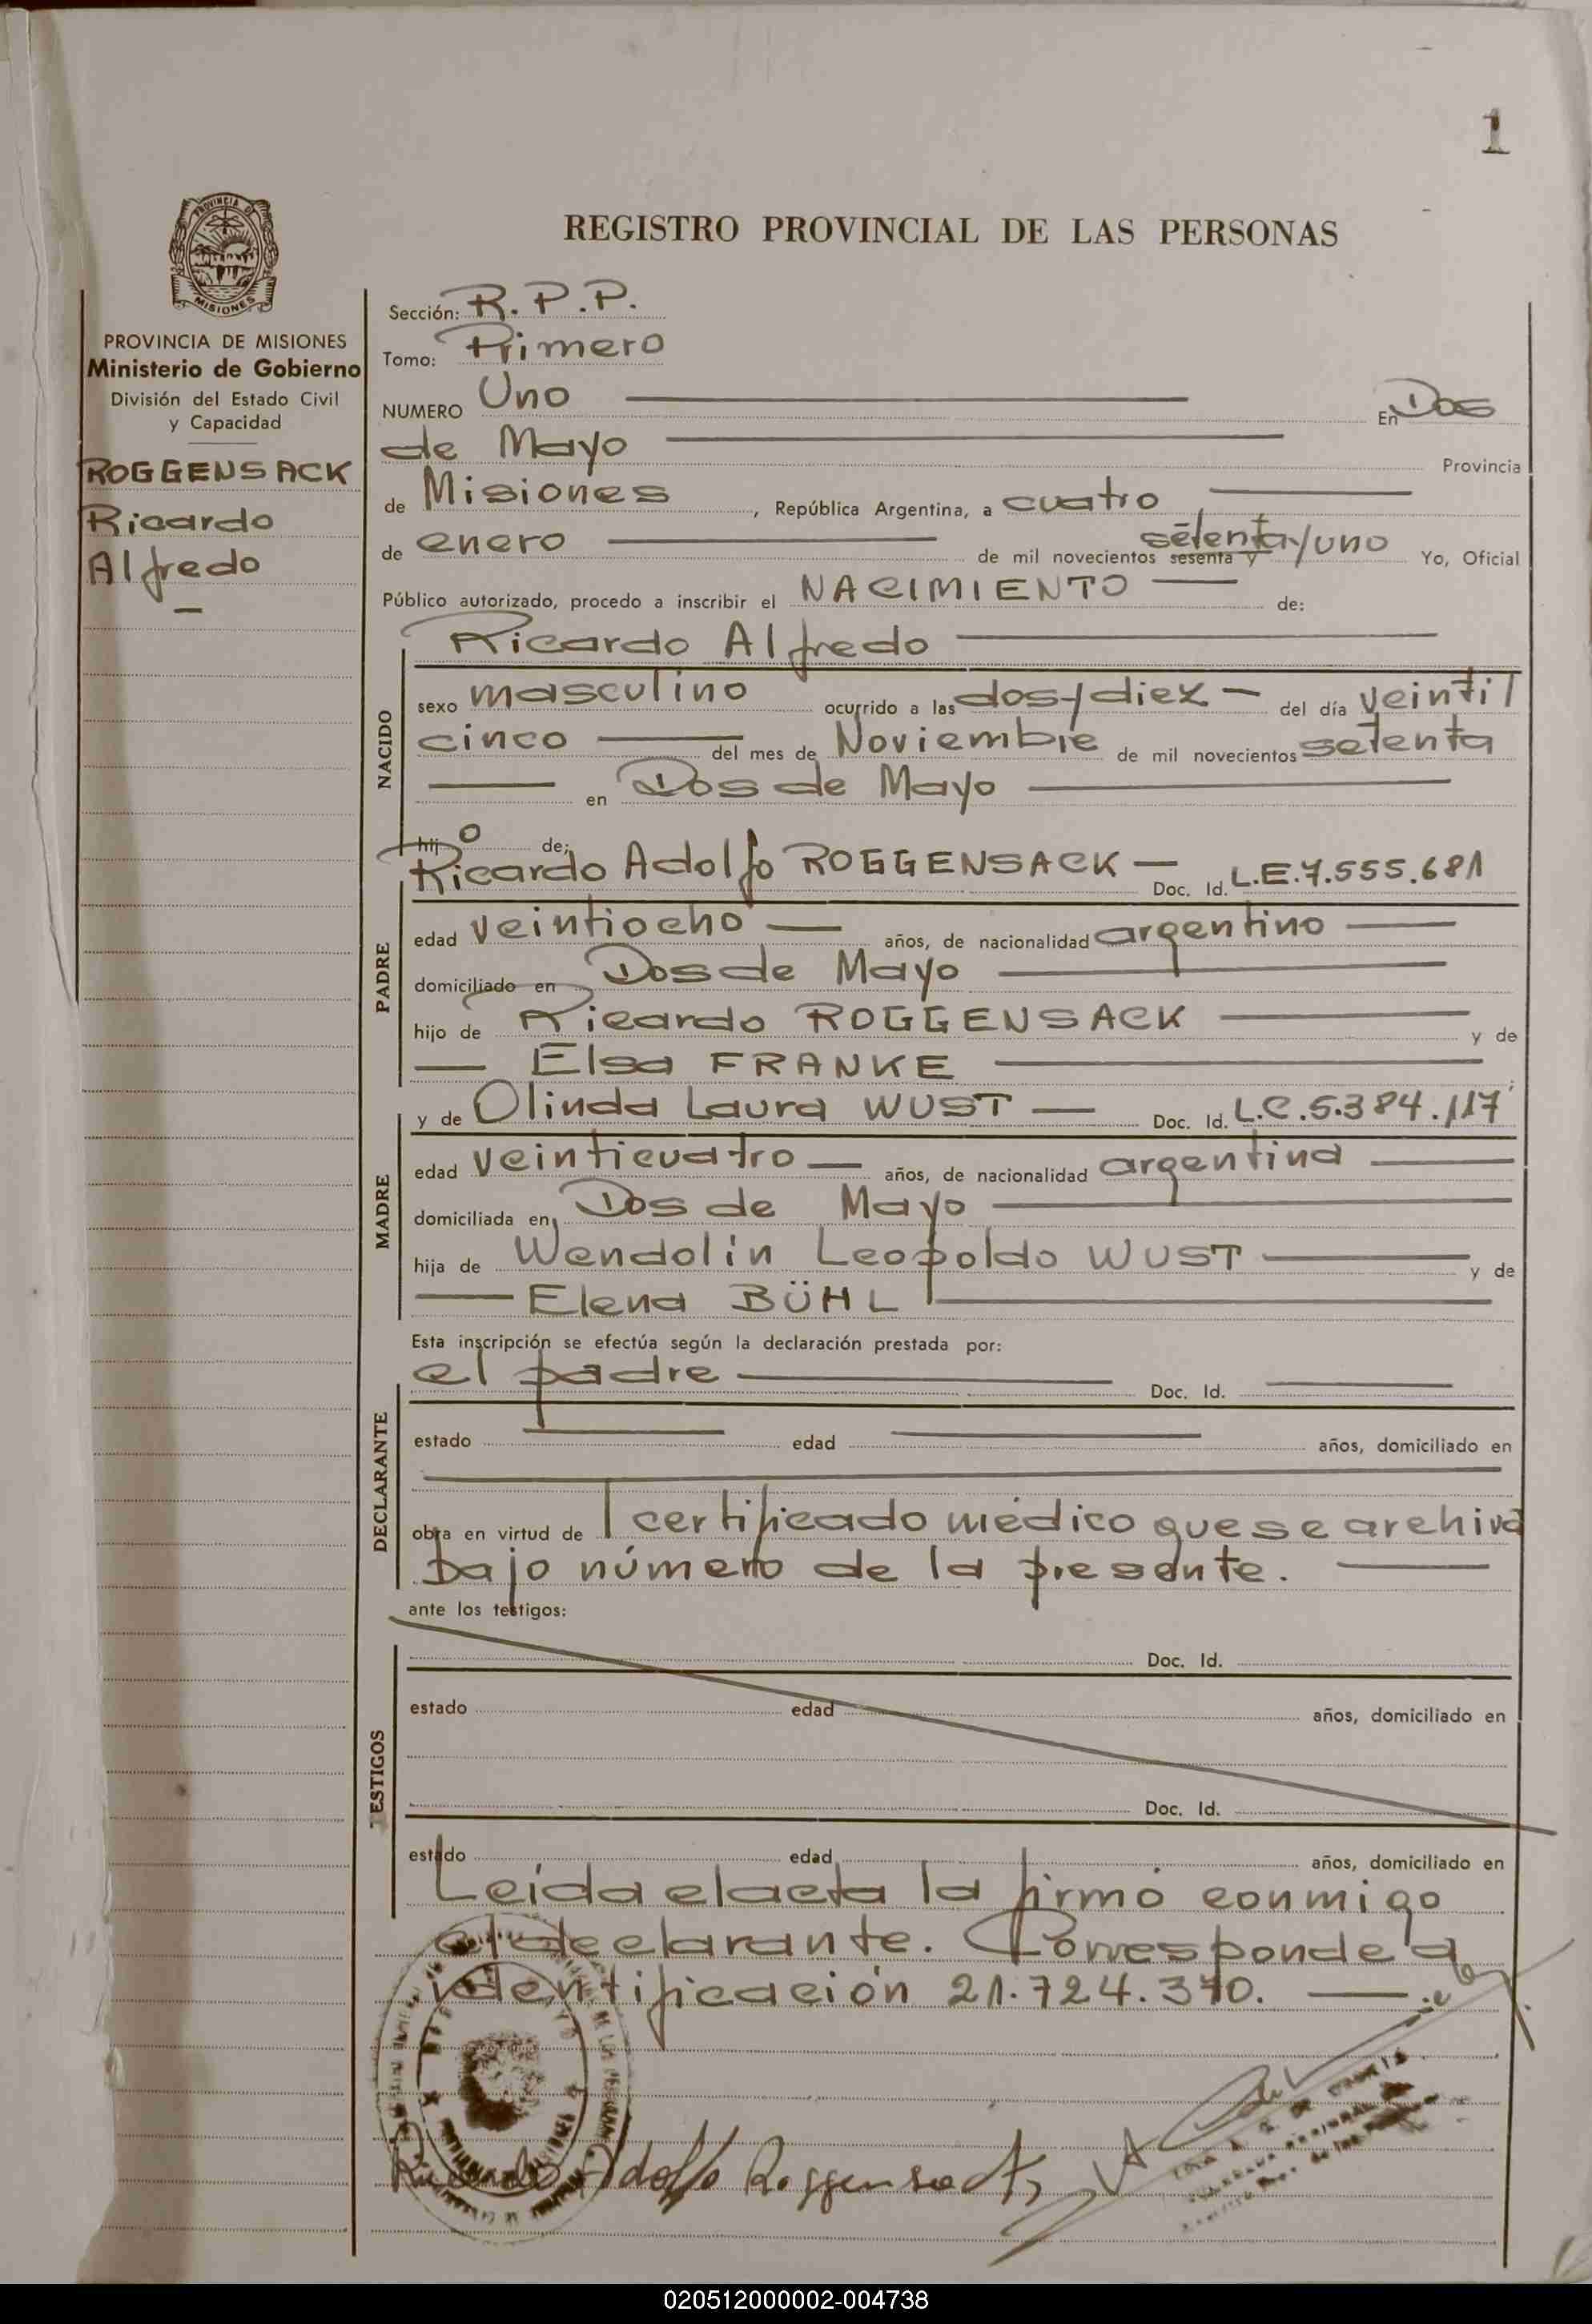 1
PROVINCIA DE
MISIONES
REGISTRO PROVINCIAL DE LAS PERSONAS
PROVINCIA DE MISIONES
Ministerio de Gobierno
División del Estado Civil
y Capacidad
ROGGENSACK
Ricardo
Alfredo
Sección: R.P.P.
Tomo: Primero
NUMERO Uno En Dos
de Mayo Provincia
de Misiones, República Argentina, a cuatro
de enero de mil novecientos sesenta y setenta y uno Yo, Oficial
Público autorizado, procedo a inscribir el NACIMIENTO de:
Ricardo Alfredo
NACIDO
sexo masculino ocurrido a las dos y diez del día veinti
cinco del mes de Noviembre de mil novecientos setenta
en Dos de Mayo
hijo de;
Ricardo Adolfo ROGGENSACK Doc. Id. L.E.7.555.681
PADRE
edad veintiocho años, de nacionalidad argentino
domiciliado en Dos de Mayo
hijo de Ricardo ROGGENSACK y de
Elsa FRANKE
y de Olinda Laura WUST Doc. Id. L.C.5.384.117
MADRE
edad veinticuatro años, de nacionalidad argentina
domiciliada en Dos de Mayo
hija de Wendolin Leopoldo WUST y de
Elena BÜHL
Esta inscripción se efectúa según la declaración prestada por:
el padre Doc. Id.
DECLARANTE
estado edad años, domiciliado en
obra en virtud de certificado médico que se archiva
bajo número de la presente.
ante los testigos:
Doc. Id.
TESTIGOS
estado edad años, domiciliado en
Doc. Id.
estado edad años, domiciliado en
Leída el acta la firmó conmigo
el declarante. Corresponde a
identificación 21.724.370.
Ricardo Adolfo Roggensack
020512000002-004738